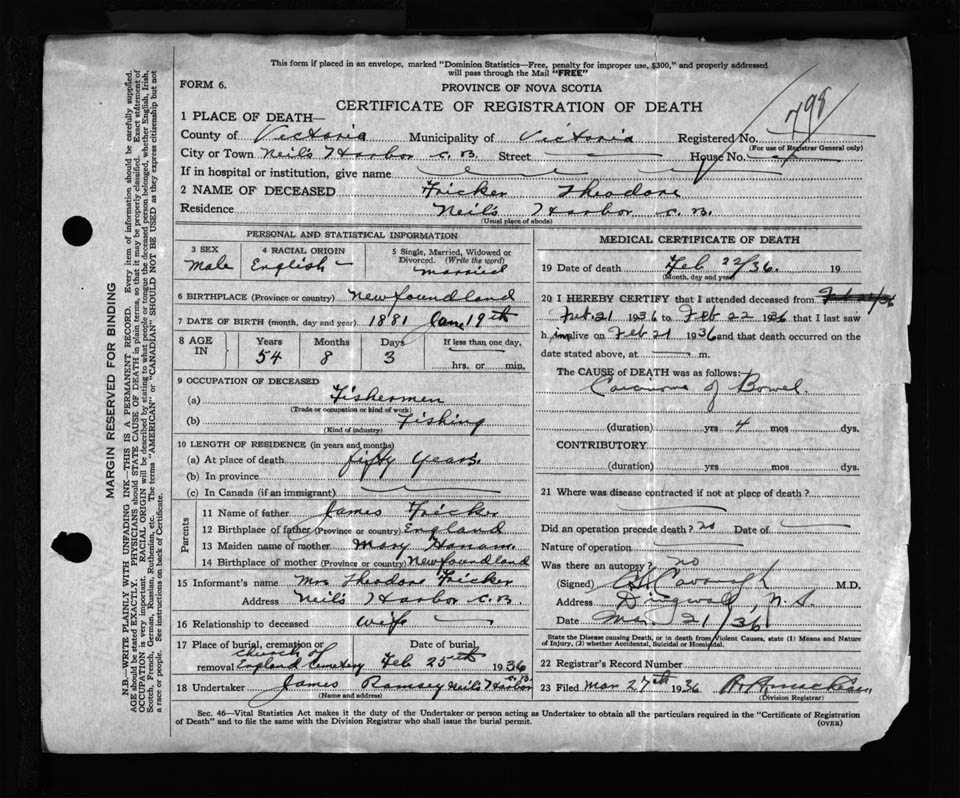 This form if placed in an envelope, marked "Dominion Statistics—Free, penalty for improper use, $300," and properly addressed
will pass through the Mail "FREE"
FORM 6.
PROVINCE OF NOVA SCOTIA
CERTIFICATE OF REGISTRATION OF DEATH
798
1 PLACE OF DEATH—
County of Victoria Municipality of Victoria Registered No.
(For use of Registrar General only)
City or Town Neil's Harbor C.B. Street House No.
If in hospital or institution, give name
2 NAME OF DECEASED Fricker Theodore
Residence Neil's Harbor C.B.
(Usual place of abode)
PERSONAL AND STATISTICAL INFORMATION
3 SEX
Male
4 RACIAL ORIGIN
English
5 Single, Married, Widowed or
Divorced. (Write the word)
married
6 BIRTHPLACE (Province or country) Newfoundland
7 DATE OF BIRTH (month, day and year) 1881 June 19th
8 AGE IN
Years 54
Months 8
Days 3
If less than one day,
hrs. or min.
9 OCCUPATION OF DECEASED
(a) Fishermen
(Trade or occupation or kind of work)
(b) Fishing
(Kind of industry)
10 LENGTH OF RESIDENCE (in years and months)
(a) At place of death fifty years.
(b) In province
(c) In Canada (if an immigrant)
Parents
11 Name of father James Fricker
12 Birthplace of father (Province or country) England
13 Maiden name of mother Mary
14 Birthplace of mother (Province or country) Newfoundland
15 Informant's name Mrs Theodore Fricker
Address Neil's Harbor C.B.
16 Relationship to deceased wife
17 Place of burial, cremation or removal Church of England Cemetery
Date of burial Feb 25th 1936
18 Undertaker James Ramsey Neil's Harbor C.B.
(Name and address)
MEDICAL CERTIFICATE OF DEATH
19 Date of death Feb 22/36. 19
(Month, day and year)
20 I HEREBY CERTIFY that I attended deceased from
Feb. 21 1936 to Feb 22 1936 that I last saw
h im alive on Feb 21 1936 and that death occurred on the
date stated above, at m.
The CAUSE of DEATH was as follows:
Carcinoma of Bowel.
(duration) yrs 4 mos dys.
CONTRIBUTORY
(duration) yrs mos dys.
21 Where was disease contracted if not at place of death?
Did an operation precede death? no Date of
Nature of operation
Was there an autopsy? no
(Signed) M.D.
Address Dingwall, N.S.
Date Mar 21/36.
State the Disease causing Death, or in death from Violent Causes, state (1) Means and Nature
of Injury, (2) whether Accidental, Suicidal or Homicidal.
22 Registrar's Record Number
23 Filed Mar 27th 1936
(Division Registrar)
Sec. 46—Vital Statistics Act makes it the duty of the Undertaker or person acting as Undertaker to obtain all the particulars required in the "Certificate of Registration
of Death" and to file the same with the Division Registrar who shall issue the burial permit.
(OVER)
MARGIN RESERVED FOR BINDING
N.B.—WRITE PLAINLY WITH UNFADING INK—THIS IS A PERMANENT RECORD. Every item of information should be carefully supplied.
AGE should be stated EXACTLY. PHYSICIANS should STATE CAUSE OF DEATH in plain terms, so that it may be properly classified. Exact statement of
OCCUPATION is very important. RACIAL ORIGIN will be described by stating to what people or tongue the deceased person belonged, whether English, Irish,
Scotch, French, German, Russian, Ruthenian, etc. The terms "AMERICAN" or "CANADIAN" SHOULD NOT BE USED as they express citizenship but not
a race or people. See instructions on back of Certificate.